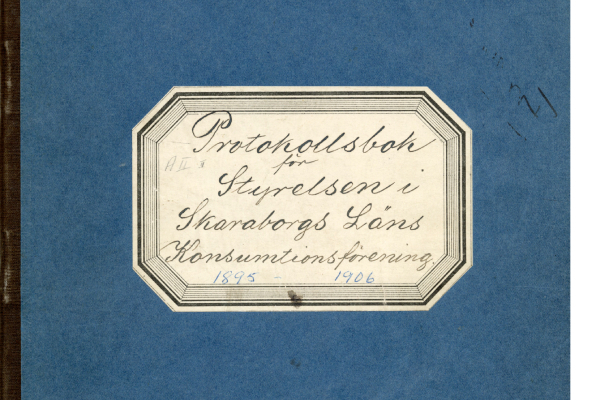 Protokollsbok
för
Styrelsen i
Skaraborgs Läns
Konsumtionsförening.
1895 - 1906